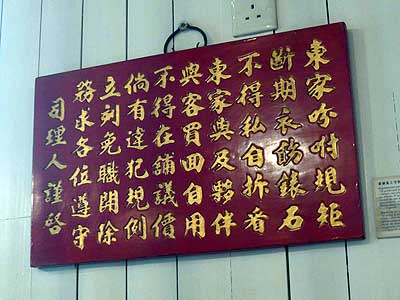 東家吩咐規矩
斷期衣飾錶石
不得私自折看
東家與及夥伴
與客買回自用
不得在舖議價
倘有違犯規例
立刻免職開除
務求各位遵守
司理人謹啓